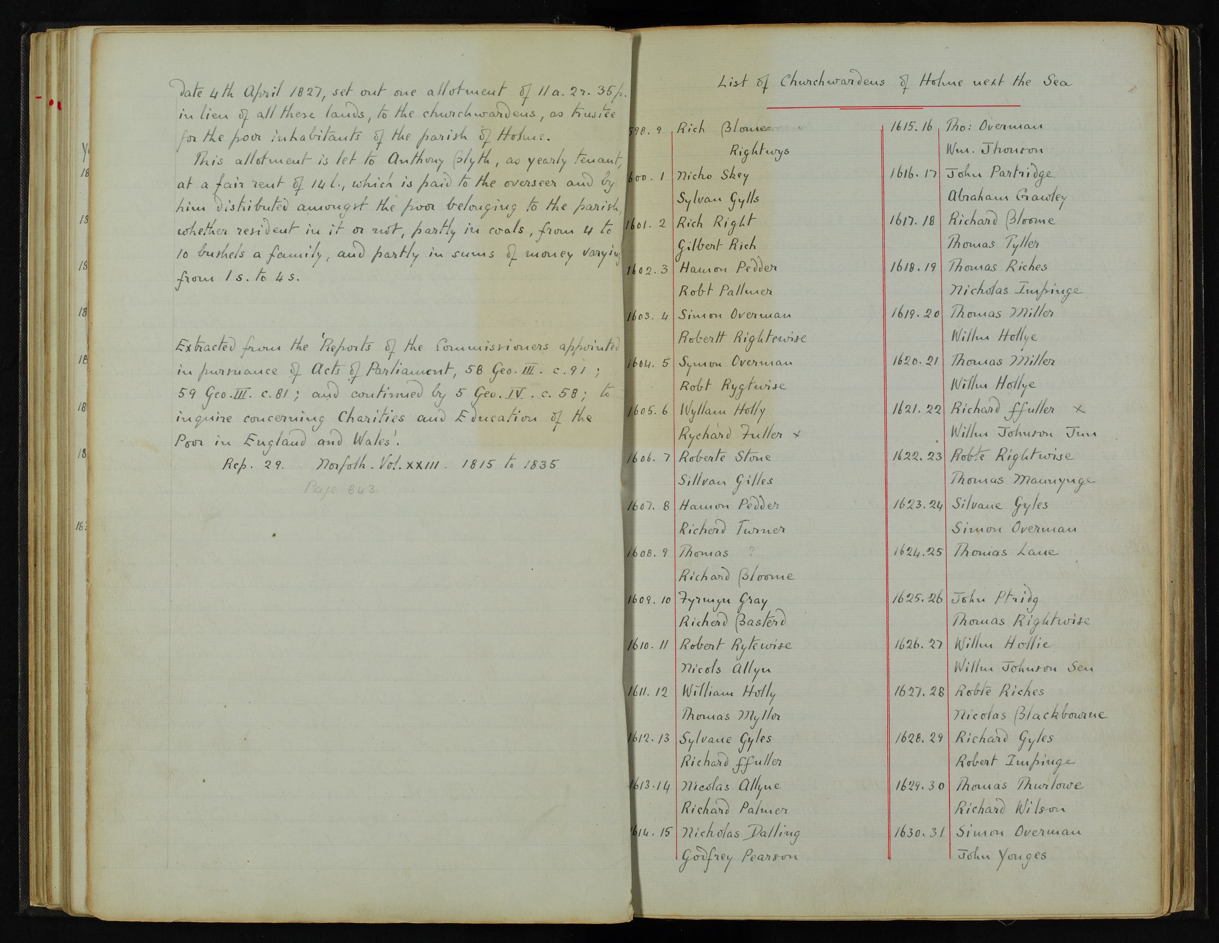 date 4th April 1827, set out one allotment of 11a. 2r. 35p.
in lieu of all these lands, to the churchwardens, as trustee
for the poor inhabitants of the parish of Holme.
This allotment is let to Anthony Blyth, as yearly tenant,
at a fair rent of 14l., which is paid to the overseer and by
him distributed amongst the poor belonging to the parish,
whether resident in it or not, partly in coals, from 4 to
10 bushels a family, and partly in sums of money varying
from 1s. to 4s.
Extracted from the 'Reports of the Commissioners appointed
in pursuance of Acts of Parliament, 58 Geo. III. c. 91;
59 Geo. III. c. 81; and continued by 5 Geo. IV. c. 58; to
inquire concerning Charities and Education of the
Poor in England and Wales'.
Rep. 29. Norfolk. Vol. XXIII. 1815 to 1835
Page 843
List of Churchwardens of Holme next the Sea
598.9 Rich Bloome
Rightwys
600.1 Nicho Skey
Sylvan Gylls
1601.2 Rich Right
Gilbert Rich
1602.3 Hamon Pedder
Robt Pallmer
1603.4 Simon Overman
Robertt Rightewise
1604.5 Symon Overman
Robt Rygtwise
1605.6 Wyllam Holly
Rychard Fuller x
1606.7 Roberte Stone
Sillvan Gilles
1607.8 Hamon Pedder
Richard Turner
1608.9 Thomas ?
Richard Bloome
1609.10 Fyrmyn Gray
Richerd Basterd
1610.11 Robert Rytewise
Nicols Allyn
1611.12 William Holly
Thomas Myller
1612.13 Sylvane Gyles
Richard ffuller
1613.14 Nicolas Allyne
Richard Palmer
1614.15 Nicholas Dalling
Godfrey Pearson
1615.16 Tho: Overman
Wm. Jhonson
1616.17 John Partridge
Abraham Crawley
1617.18 Richard Bloome
Thomas Tyller
1618.19 Thomas Riches
Nicholas Impinge
1619.20 Thomas Miller
Willm Hollye
1620.21 Thomas Miller
Willm Hollye
1621.22 Richard ffuller x
Willm Johnson Jun
1622.23 Robte Rightwise
Thomas Mannynge
1623.24 Silvane Gyles
Simon Overman
1624.25 Thomas Lane
1625.26 John Ptridg
Thomas Rightwise
1626.27 Willm Hollie
Willm Johnson Sen
1627.28 Robte Riches
Nicolas Blackbourne
1628.29 Richard Gyles
Robert Impinge
1629.30 Thomas Thurlowe
Richard Wilson
1630.31 Simon Overman
John Yonges